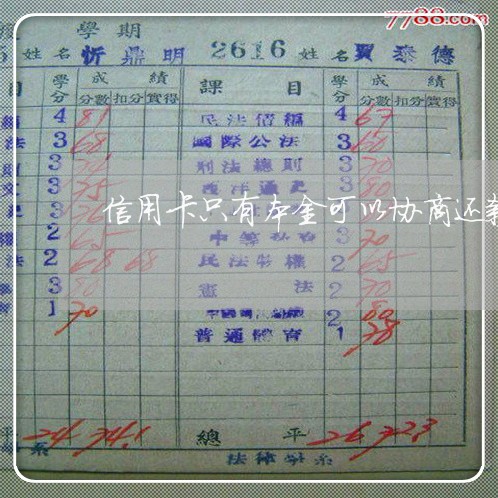 7788.com
學期
姓名 忻鼎明 2616 姓名 賈泰德
目 學分 成績 課目 學分 成績
分數 扣分 實得 分數 扣分 實得
4 81 民法債編 4 67
法 3 68 國際公法 3 60
3 刑法總則 3 70
3 75 3 80
信用卡只有本金可以协商还
2 65 3 70
法 2 68 68 民法物權 2 65
3 80 憲法 2 70
1 70 2 80
普通體育 1 78
平 24 74.1 總平 26 72.3
系 法律學系